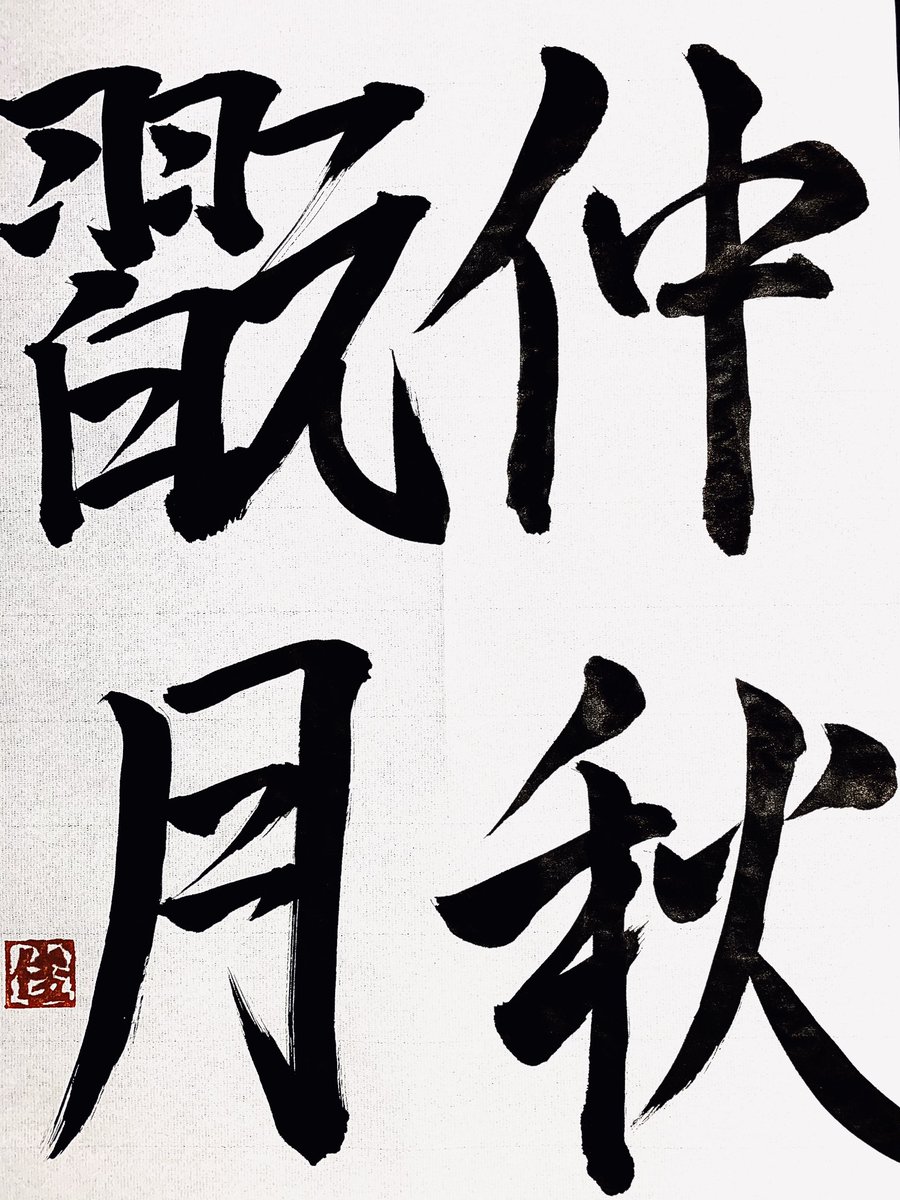 仲秋
翫月